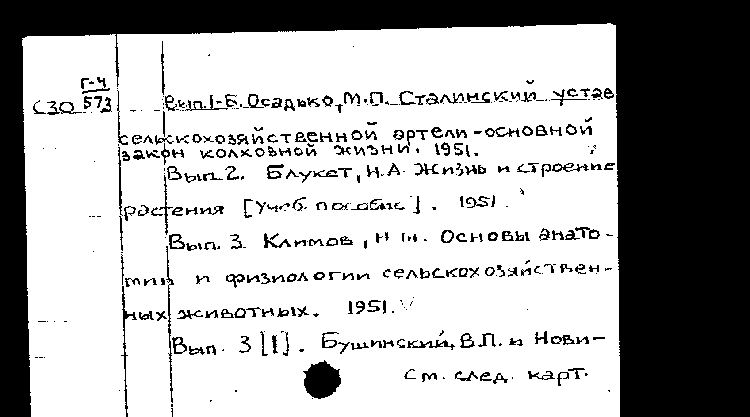 Г-4
С30 573 Вып.1-Б. Осадько, М.П. Сталинский устав
сельскохозяйственной артели-основной
закон колхозной жизни. 1951.
Вып 2. Блукет, Н.А. Жизнь и строение
растения [Учеб. пособие]. 1951.
Вып. 3. Климов, Н Н. Основы анато-
мии и физиологии сельскохозяйствен-
ных животных. 1951.
Вып. 3 [1]. Бушинский, В.П. и Нови-
См. след. карт.